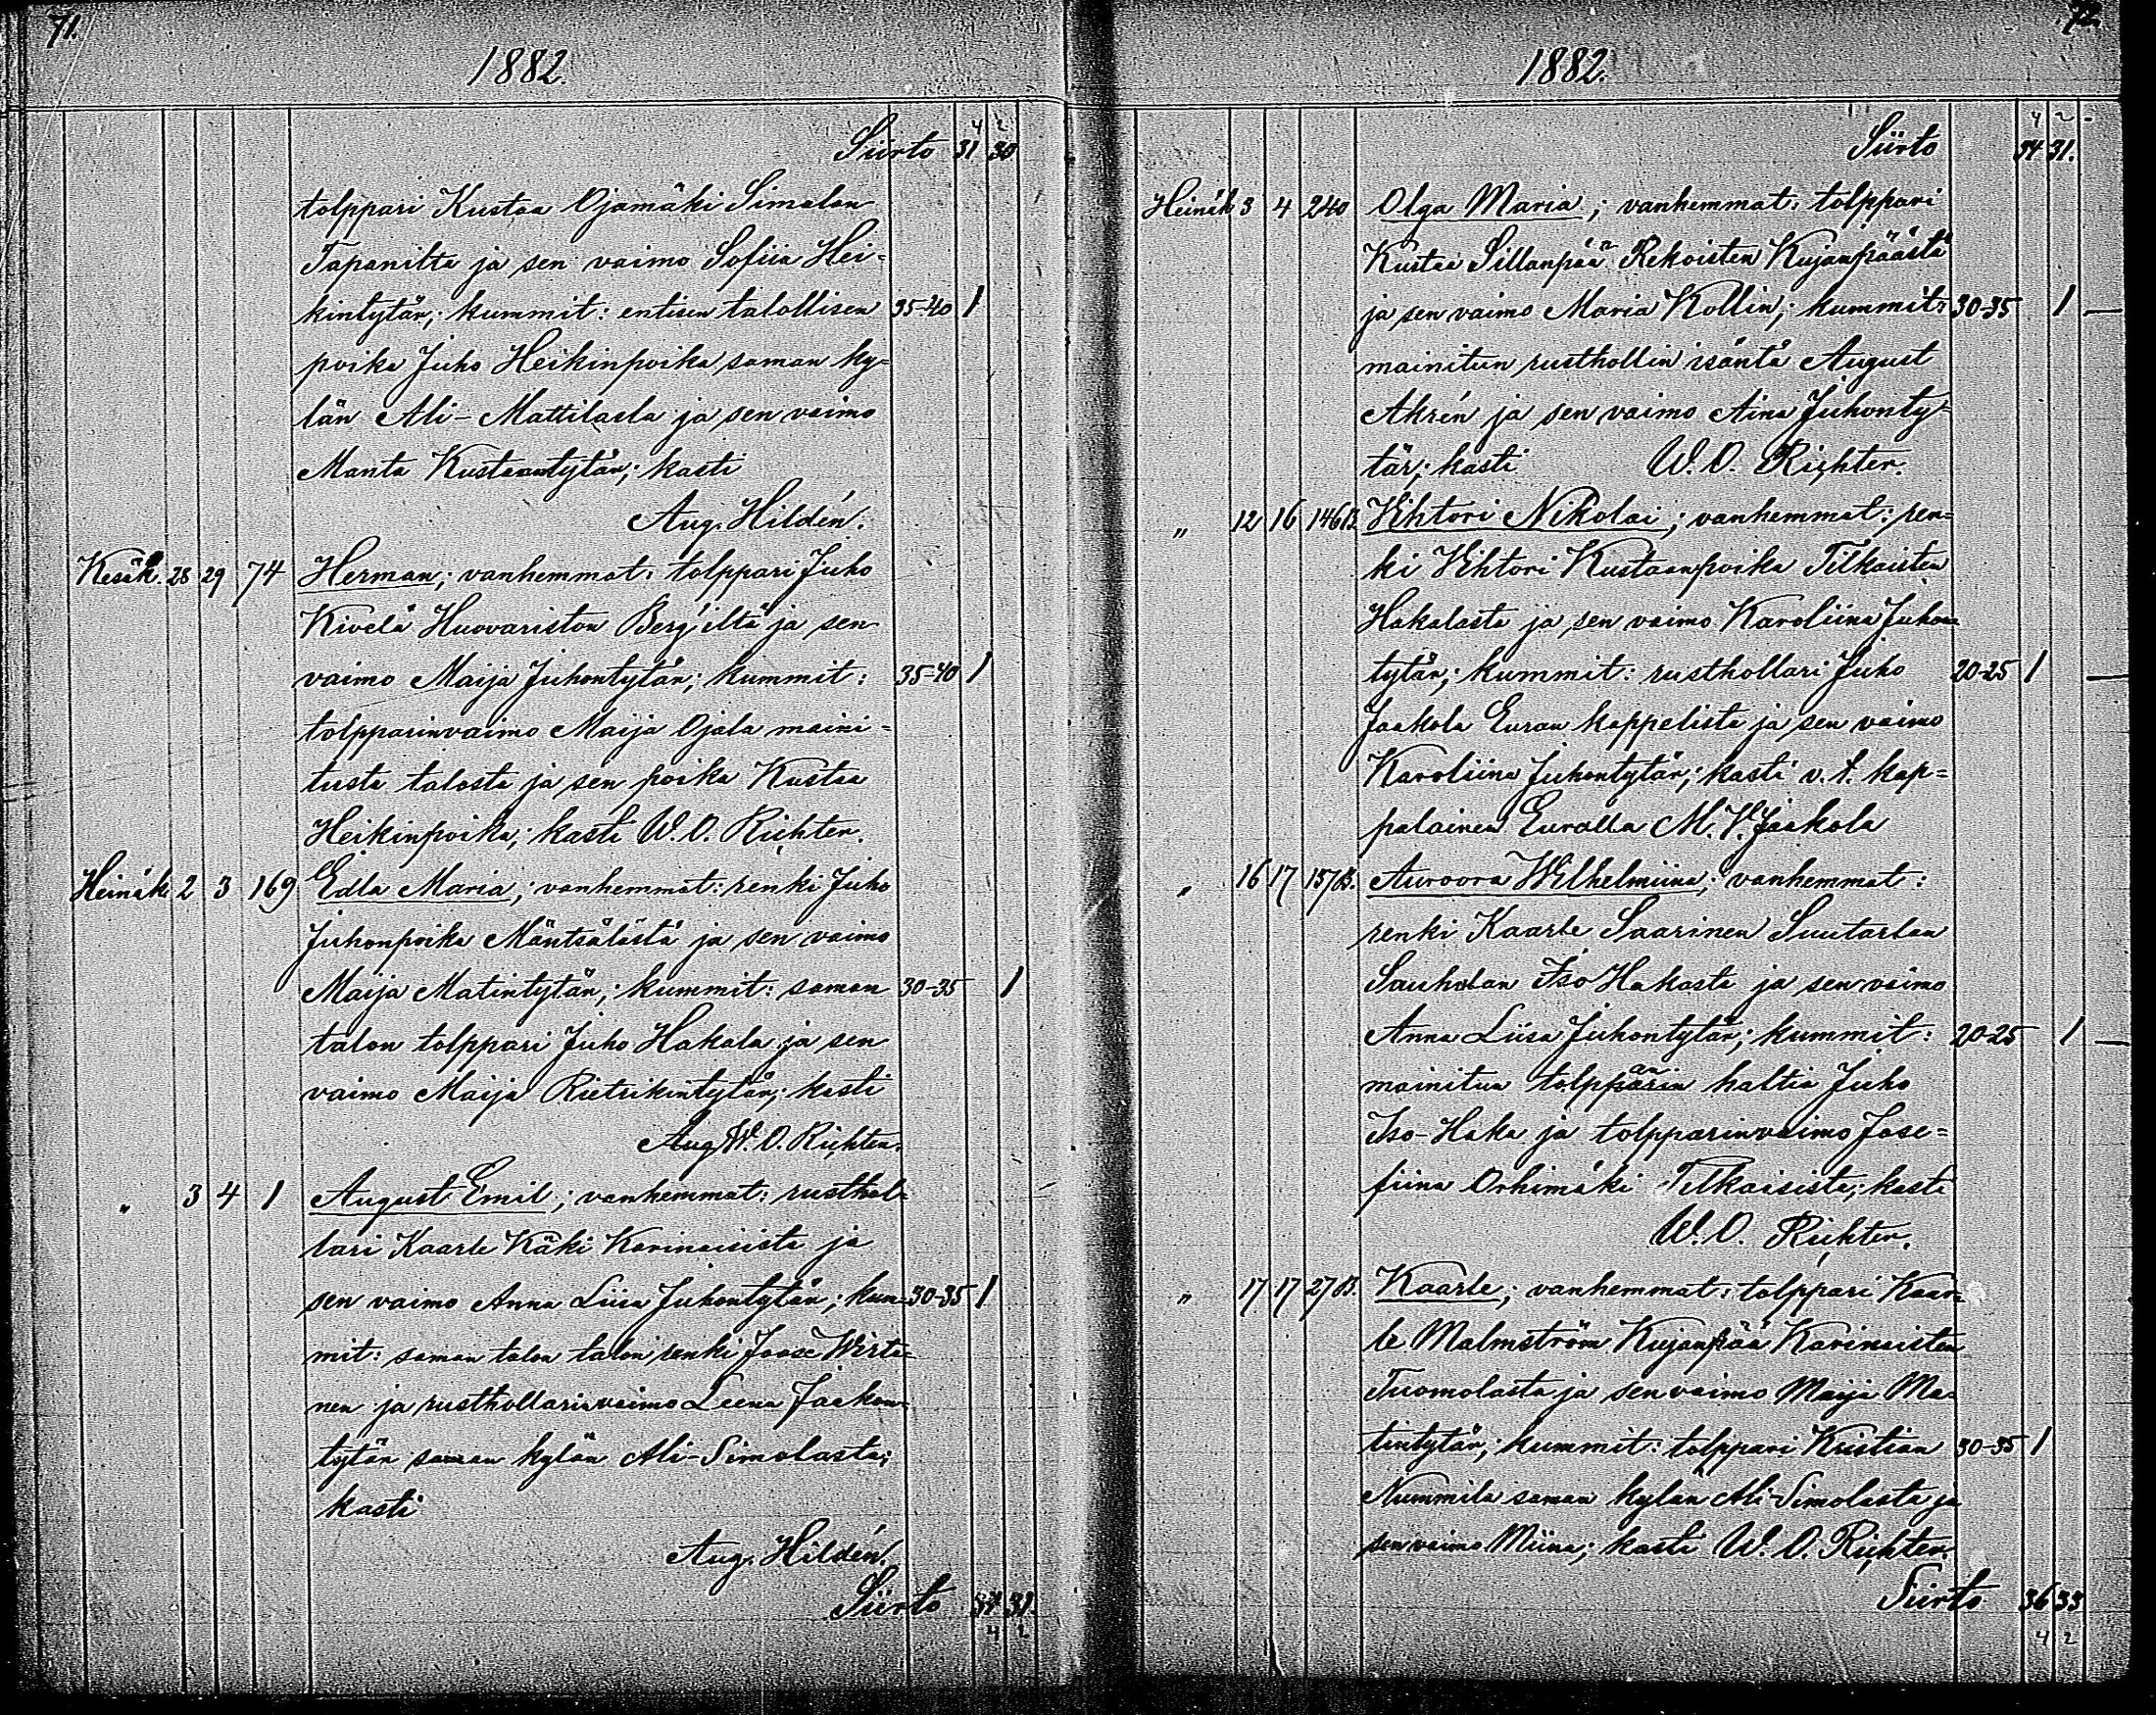 71.
1882.
4 2
Siirto 31 30
tolppari Kustaa Ojamäki Simalan
Tapanilta ja sen vaimo Sofiia Hei=
kintytär; kummit: entisen talollisen 35-40 1
poika Juho Heikinpoika saman ky=
län Ali-Mattilasta ja sen vaimo
Manta Kustaantytär; kasti
Aug. Hildén.
Kesäk. 28 29 74 Herman; vanhemmat: tolppari Juho
Kivelä Huovariston Berg'iltä ja sen
vaimo Maija Juhontytär; kummit: 35-40 1
tolpparinvaimo Maija Ojala maini=
tusta talosta ja sen poika Kustaa
Heikinpoika; kasti W. O. Richter.
Heinäk. 2 3 169 Edla Maria; vanhemmat: renki Juho
Juhonpoika Mäntsälästä ja sen vaimo
Maija Matintytär; kummit: saman 30-35 1
talon tolppari Juho Hakala ja sen
vaimo Maija Rietrikintytär; kasti
Aug W. O. Richter.
" 3 4 1 August Emil; vanhemmat: rusthol=
lari Kaarle Käki Karinaisista ja
sen vaimo Anna Liisa Juhontytär; kum= 30-35 1
mit: saman talon talon renki Joose Wirta=
nen ja rusthollarinvaimo Leena Jaakon=
tytär saman kylän Ali-Simolasta;
kasti
Aug. Hildén.
Siirto 34 31.
4 2
72.
1882.
4 2 -
Siirto 34 31.
Heinäk 3 4 240 Olga Maria; vanhemmat: tolppari
Kustaa Sillanpää Rekoisten Kujanpäästä
ja sen vaimo Maria Kollin; kummit: 30-35 1
mainitun rusthollin isäntä August
Ahrén ja sen vaimo Aina Juhonty=
tär; kasti W. O. Richter.
" 12 16 146B. Wihtori Nikolai; vanhemmat: ren=
ki Wihtori Kustaanpoika Tilkaisten
Hakalasta ja sen vaimo Karoliina Juhon=
tytär; kummit: rusthollari Juho 20-25 1
Jaakola Euran kappelista ja sen vaimo
Karoliina Juhontytär; kasti v. t. kap=
palainen Euralla M. V. Jaakola
" 16 17 157B. Auroora Wilhelmiina; vanhemmat:
renki Kaarle Saarinen Suutarlan
Sauholan Iso Hakasta ja sen vaimo
Anna Liisa Juhontytär; kummit: 20-25 1
mainitun tolpparin haltia Juho
Iso-Haka ja tolpparinvaimo Jose=
fiina Orhimäki Tilkaisista; kasti
W. O. Richter.
" 17 17 27B. Kaarle; vanhemmat: tolppari Kaar=
le Malmström Kujanpää Karinaisten
Tuomolasta ja sen vaimo Maija Ma=
tintytär; kummit: tolppari Kristian 30-35 1
Nummila saman kylän Ali-Simolasta ja
sen vaimo Miina; kasti W. O. Richter.
Siirto 36 33
4 2